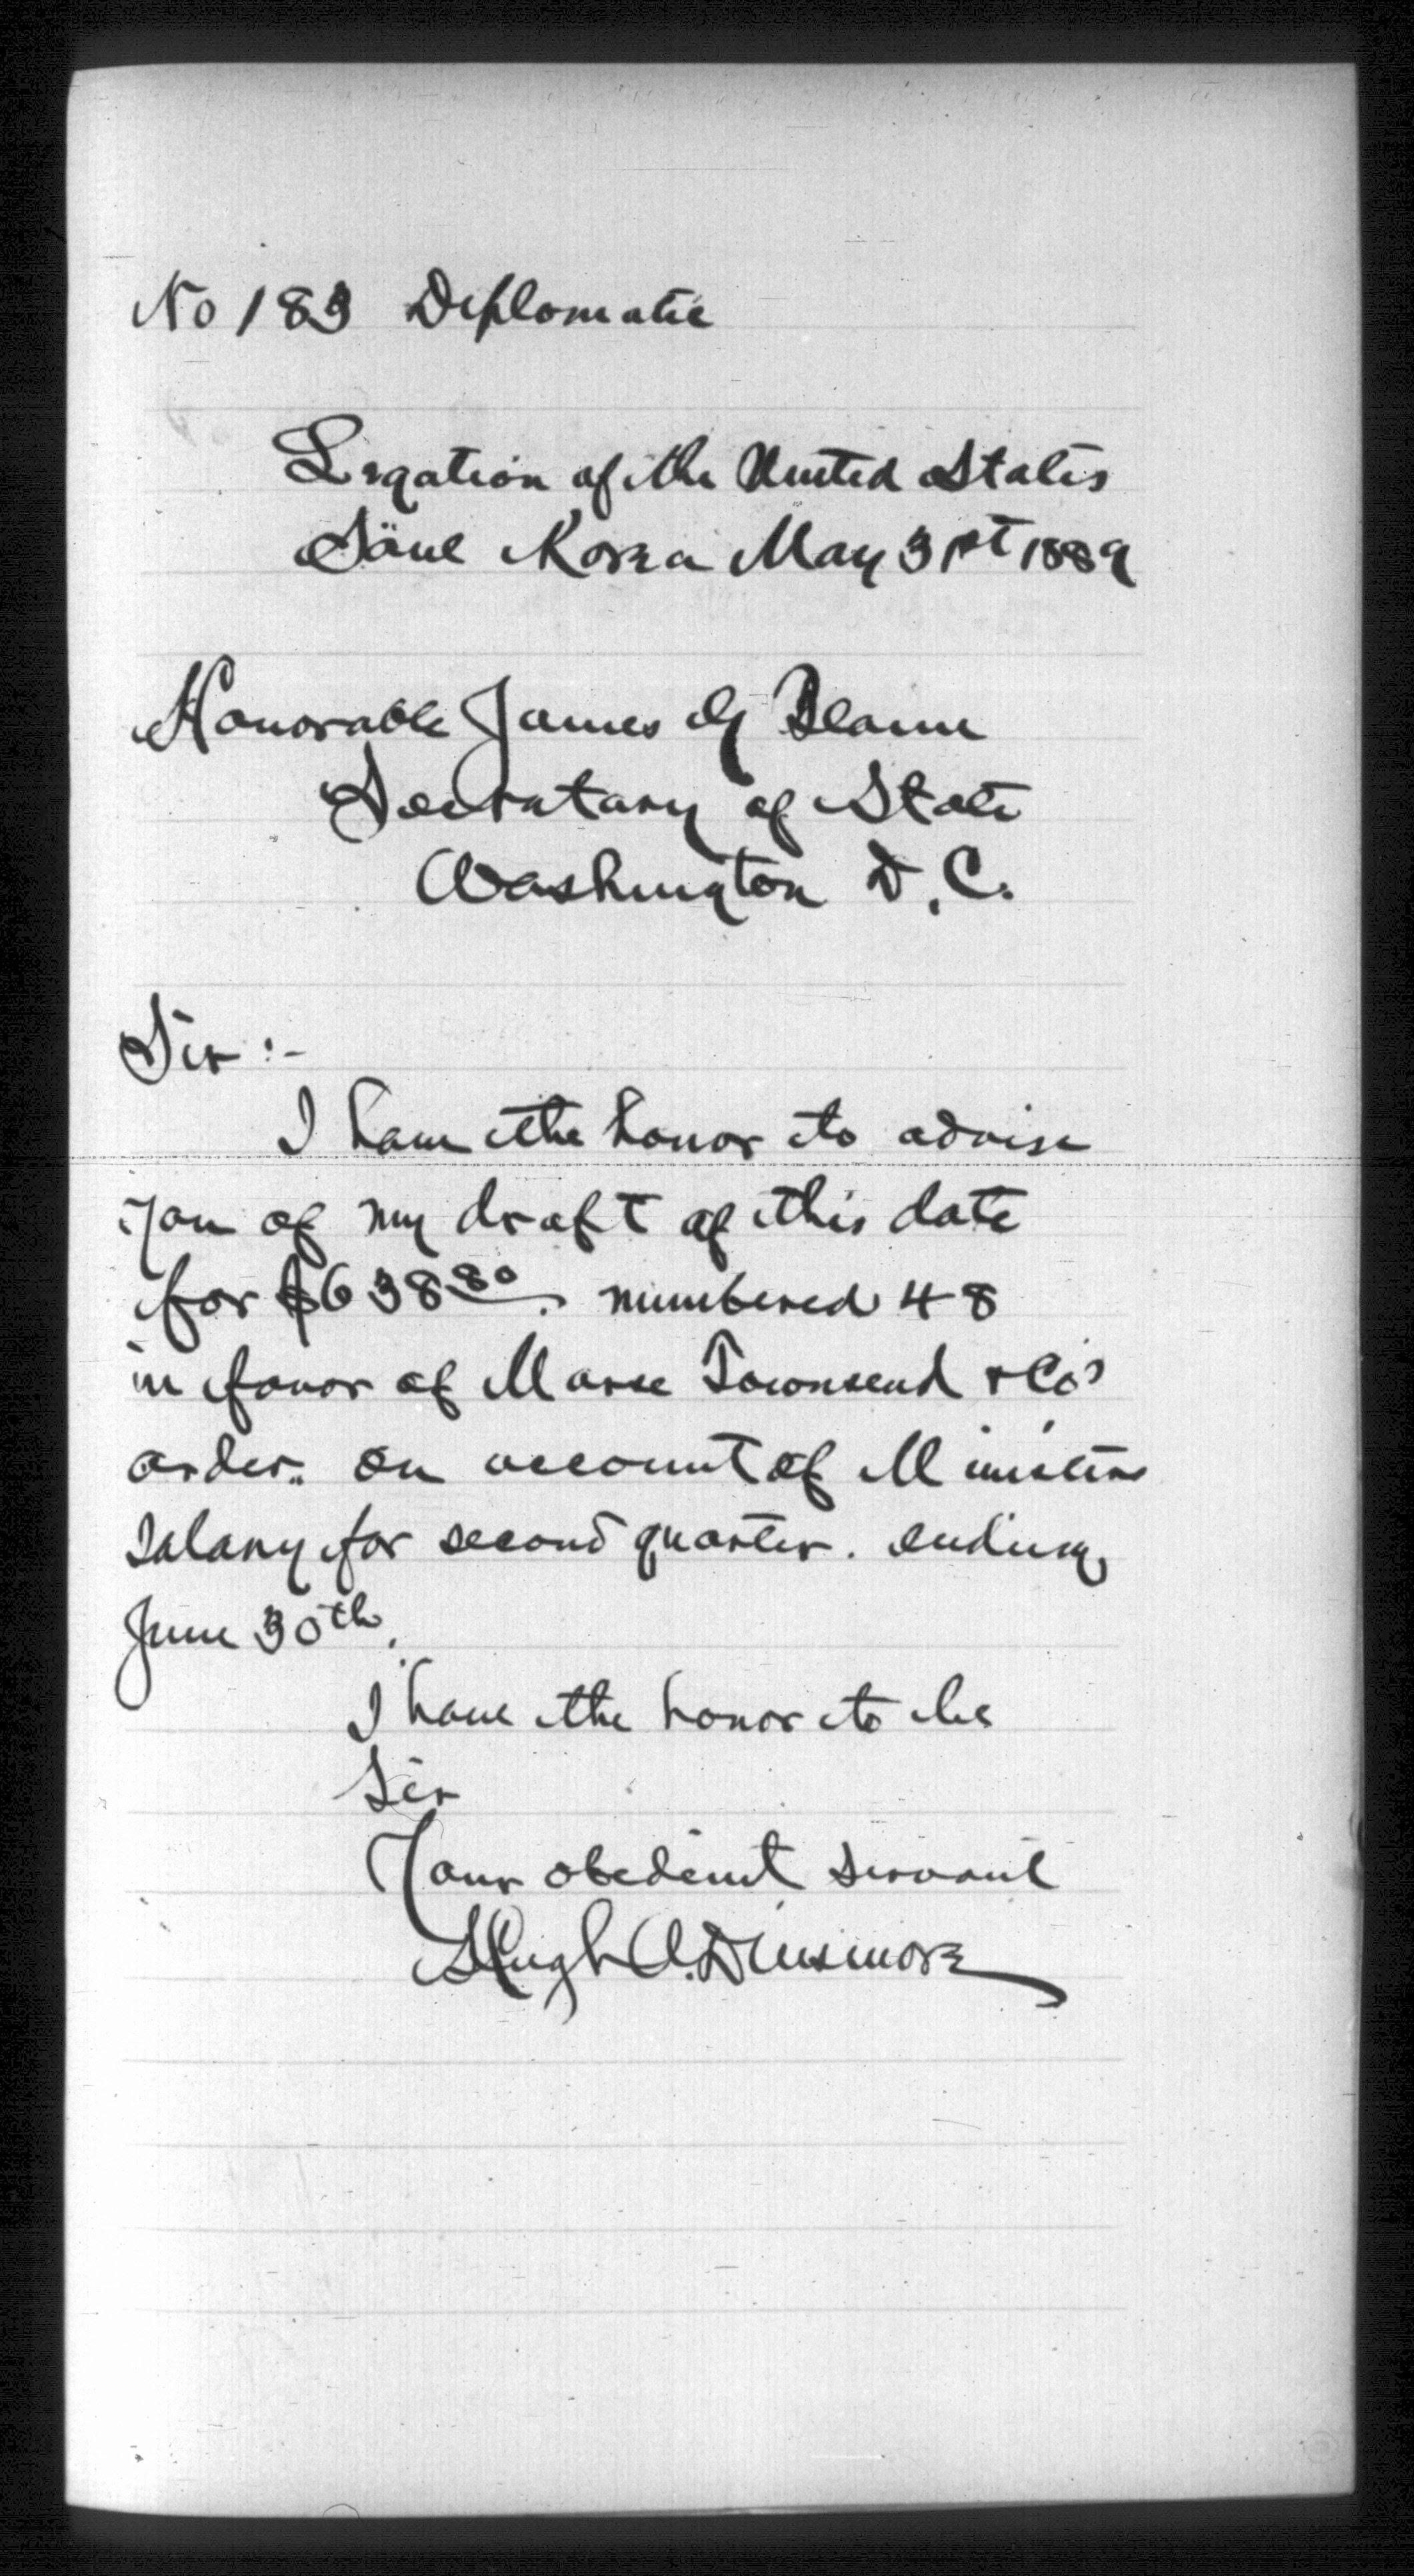 No 183 Diplomatic
Legation of the United States
Söul Korea May 31st 1889
Honorable James G Blaine
Secretary of State
Washington D.C.
Sir :-
I have the honor to advise
you of my draft of this date
for $638 80. numbered 48
in favor of Morse Townsend & Co's
order. on account of Ministers
Salary for second quarter. ending
June 30th.
I have the honor to be
Sir
Your obedient servant
Hugh A. Dinsmore